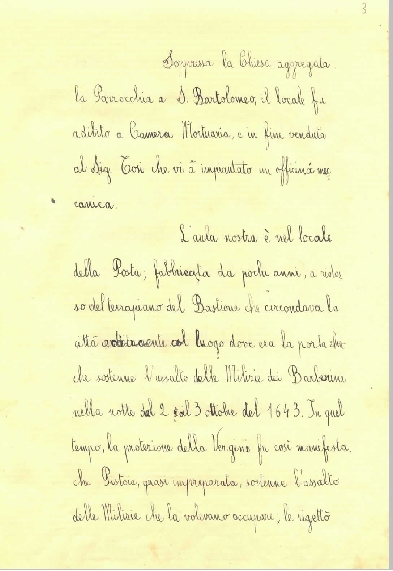 3
Soppressa la Chiesa, aggregata
la Parrocchia a S. Bartolomeo, il locale fu
adibito a Camera Mortuaria, e in fine venduto
al Sig. Tosi che vi à impiantato un officina mec
canica.
L'aula nostra è nel locale
della Posta; fabbricata da pochi anni, a ridos
so del terrapiano del Bastione che circondava la
città col luogo dove era la porta
che sostenne l'assalto delle Milizie dei Barberini
nella notte del 2 al 3 ottobre del 1643. In quel
tempo, la protezione della Vergine fu così manifesta,
che Pistoia, quasi impreparata, sostenne l'assalto
delle Milizie che la volevano occupare, le rigettò